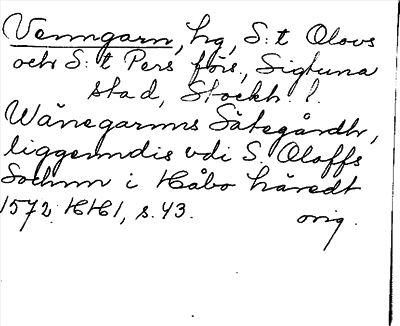 Venngarn, hg, S:t Olovs
och S:t Pers förs, Sigtuna
stad, Stockh. l.
Wänegarnns Sätegårdh,
liggenndis vdi S. Oloffs
Sochnn i Håbo häredt
1572 HH1, s. 43. orig.